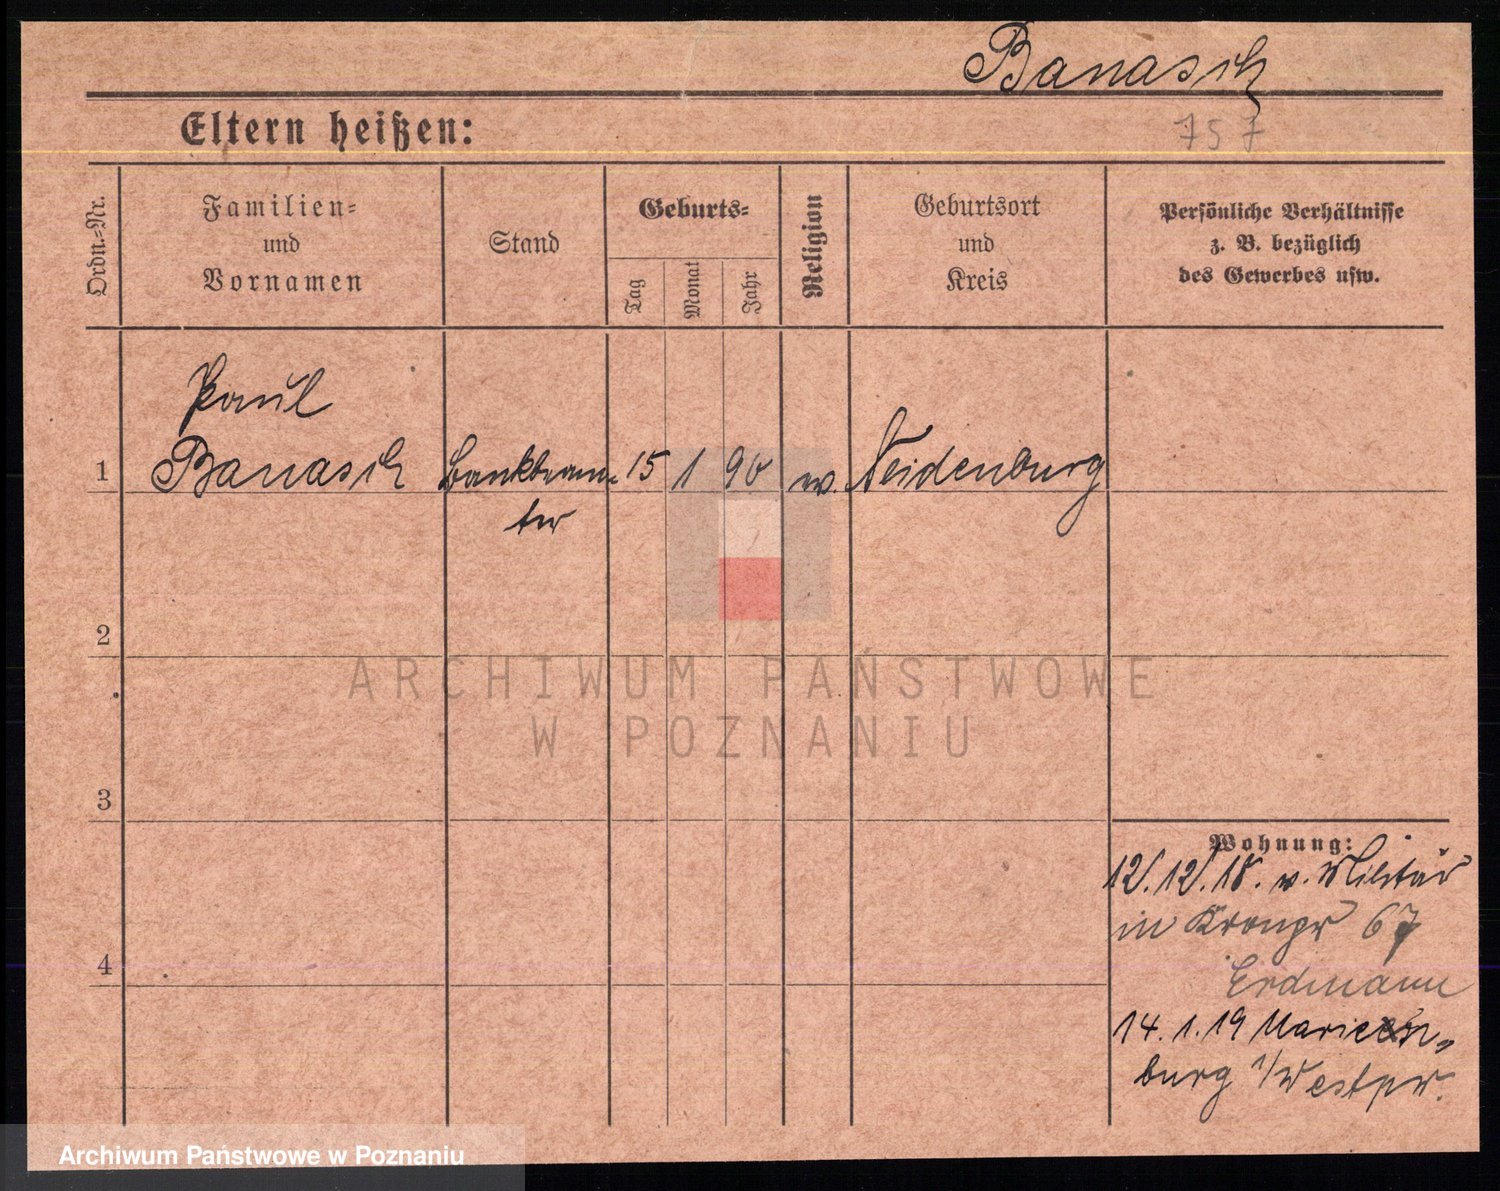 Banasch
Eltern heißen:
757
Ordn.-Nr.
Familien-
und
Vornamen
Stand
Geburts-
Tag
Monat
Jahr
Religion
Geburtsort
und
Kreis
Persönliche Verhältnisse
z. B. bezüglich
des Gewerbes usw.
Paul
1 Banasch Bankbeam- 15 1 90 Neidenburg
ter
2
ARCHIWUM PAŃSTWOWE
W POZNANIU
3
Wohnung:
12.12.18. v. Militär
in Kronpr 67
4
Erdmann
14.1.19 Marien-
burg i/Westpr.
Archiwum Państwowe w Poznaniu